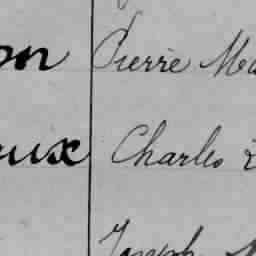 on Pierre Ma
eux Charles
Joseph